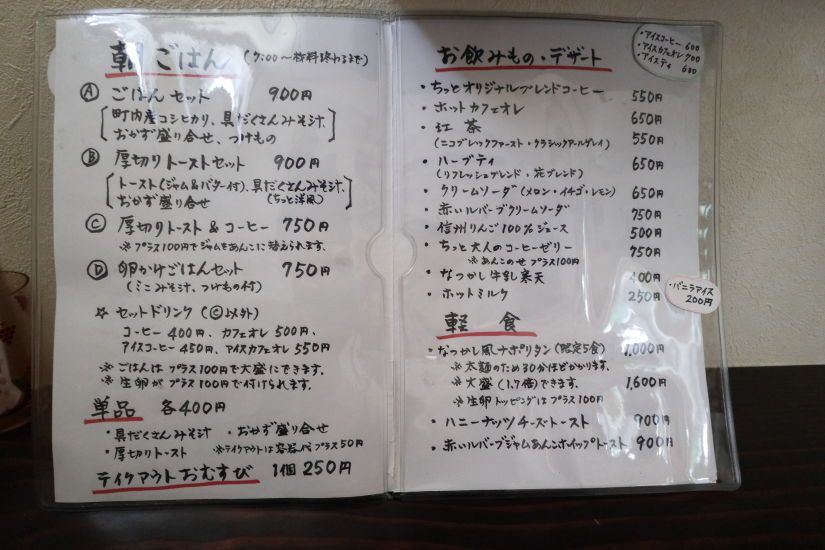 朝ごはん (7:00～材料終わるまで)
Ⓐ ごはんセット 900円
町内産コシヒカリ、具だくさんみそ汁、
おかず盛り合せ、つけもの
Ⓑ 厚切りトーストセット 900円
トースト(ジャム&バター付)、具だくさんみそ汁、
おかず盛り合せ (ちっと洋風)
Ⓒ 厚切りトースト & コーヒー 750円
※プラス100円でジャムをあんこに替えられます。
Ⓓ 卵かけごはんセット 750円
(ミニみそ汁、つけもの付)
☆ セットドリンク (Ⓒ以外)
コーヒー 400円、カフェオレ 500円、
アイスコーヒー 450円、アイスカフェオレ 550円
※ごはんはプラス100円で大盛にできます。
※生卵がプラス100円で付けられます。
単品 各400円
・具だくさんみそ汁 ・おかず盛り合せ
・厚切りトースト ※テイクアウトは容器代プラス50円
テイクアウトおむすび 1個 250円
お飲みもの・デザート
・アイスコーヒー 600
・アイスカフェオレ 700
・アイスティ 600
・ちっとオリジナルブレンドコーヒー 550円
・ホットカフェオレ 650円
・紅茶 550円
(ニコブレックファースト・クラシックアールグレイ)
・ハーブティ 650円
(リフレッシュブレンド・花ブレンド)
・クリームソーダ (メロン・イチゴ・レモン) 650円
・赤いルバーブクリームソーダ 750円
・信州りんご100%ジュース 500円
・ちっと大人のコーヒーゼリー 750円
※あんこのせプラス100円
・なつかし牛乳寒天 400円
・ホットミルク 250円
・バニラアイス
200円
軽食
・なつかし風ナポリタン (限定5食) 1,000円
※太麺のため30分ほどかかります。
※大盛 (1.7倍) できます。 1,600円
※生卵トッピングはプラス100円
・ハニーナッツチーズトースト 900円
・赤いルバーブジャムあんこホイップトースト 900円